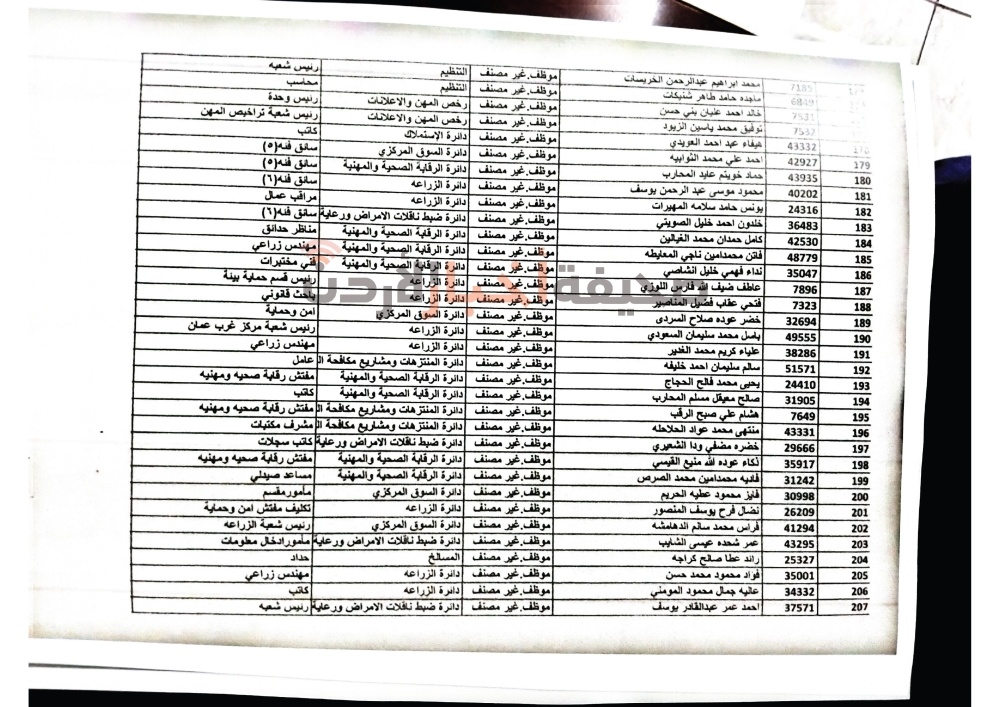 7185 محمد ابراهيم عبدالرحمن الخريسات موظف.غير مصنف التنظيم رئيس شعبه
6849 ماجده حامد طاهر شنيكات موظف.غير مصنف التنظيم محاسب
7531 خالد احمد عليان بني حسن موظف.غير مصنف رخص المهن والاعلانات رئيس وحدة
7532 توفيق محمد ياسين الزيود موظف.غير مصنف رخص المهن والاعلانات رئيس شعبة تراخيص المهن
178 43332 هيفاء عبد احمد العويدي موظف.غير مصنف دائرة الإستملاك كاتب
179 42927 احمد علي محمد الثوابيه موظف.غير مصنف دائرة السوق المركزي سائق فئه(٥)
180 43935 حماد خويتم عايد المحارب موظف.غير مصنف دائرة الرقابة الصحية والمهنية سائق فئه(٥)
181 40202 محمود موسى عبد الرحمن يوسف موظف.غير مصنف دائرة الزراعه سائق فئه(٦)
182 24316 يونس حامد سلامه المهيرات موظف.غير مصنف دائرة الزراعه مراقب عمال
183 36483 خلدون احمد خليل الصويتي موظف.غير مصنف دائرة ضبط ناقلات الامراض ورعاية سائق فئه(٦)
184 42530 كامل حمدان محمد الغيالين موظف.غير مصنف دائرة الرقابة الصحية والمهنية مناظر حدائق
185 48779 فاتن محمدامين ناجي المعايطه موظف.غير مصنف دائرة الرقابة الصحية والمهنية مهندس زراعي
186 35047 نداء فهمي خليل انشاصي موظف.غير مصنف دائرة الرقابة الصحية والمهنية فني مختبرات
187 7896 عاطف ضيف الله فارس اللوزي موظف.غير مصنف دائرة الزراعه رئيس قسم حماية بيئة
188 7323 فتحي عقاب فضيل المناصير موظف.غير مصنف دائرة الزراعه باحث قانوني
189 32694 خضر عوده صلاح السردى موظف.غير مصنف دائرة السوق المركزي امن وحماية
190 49555 باسل محمد سليمان السعودي موظف.غير مصنف دائرة الزراعه رئيس شعبة مركز غرب عمان
191 38286 علياء كريم محمد الغدير موظف.غير مصنف دائرة الزراعه مهندس زراعي
192 51571 سالم سليمان احمد خليفه موظف.غير مصنف دائرة المنتزهات ومشاريع مكافحة ال عامل
193 24410 يحيى محمد فالح الحجاج موظف.غير مصنف دائرة الرقابة الصحية والمهنية مفتش رقابة صحيه ومهنيه
194 31905 صالح معيقل مسلم المحارب موظف.غير مصنف دائرة الرقابة الصحية والمهنية كاتب
195 7649 هشام علي صبح الرقب موظف.غير مصنف دائرة المنتزهات ومشاريع مكافحة ال مفتش رقابة صحيه ومهنيه
196 43331 منتهى محمد عواد الحلاحله موظف.غير مصنف دائرة المنتزهات ومشاريع مكافحة ال مشرف مكتبات
197 29666 خضره مضفي ودا الشعيري موظف.غير مصنف دائرة ضبط ناقلات الامراض ورعاية كاتب سجلات
198 35917 ذكاء عوده الله منيع القيسي موظف.غير مصنف دائرة الرقابة الصحية والمهنية مفتش رقابة صحيه ومهنيه
199 31242 فاديه محمدامين محمد الصرص موظف.غير مصنف دائرة الرقابة الصحية والمهنية مساعد صيدلي
200 30998 فايز محمود عطيه الحريم موظف.غير مصنف دائرة السوق المركزي مأمورمقسم
201 26209 نضال فرح يوسف المنصور موظف.غير مصنف دائرة الزراعه تكليف مفتش امن وحماية
202 41294 فراس محمد سالم الدهامشه موظف.غير مصنف دائرة السوق المركزي رئيس شعبة الزراعه
203 43295 عمر شحده عيسى الشايب موظف.غير مصنف دائرة ضبط ناقلات الامراض ورعاية مأمورادخال معلومات
204 25327 رائد عطا صالح كراجه موظف.غير مصنف المسالخ حداد
205 35001 فؤاد محمود محمد حسن موظف.غير مصنف دائرة الزراعه مهندس زراعي
206 34332 عاليه جمال محمود المومني موظف.غير مصنف دائرة الزراعه كاتب
207 37571 احمد عمر عبدالقادر يوسف موظف.غير مصنف دائرة ضبط ناقلات الامراض ورعاية رئيس شعبه
صحيفة أخبار الأردن